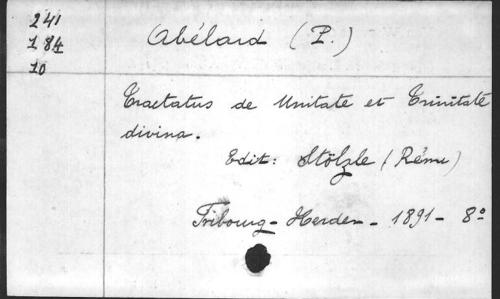 241
184
10
Abélard (P.)
Tractatus de Unitate et Trinitate
divina.
Edit: Stölzle (Rému)
Fribourg - Herder - 1891 - 8º